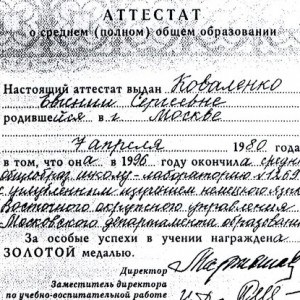 АТТЕСТАТ
о среднем (полном) общем образовании
Настоящий аттестат выдан Коваленко
Евгении Сергеевне
родившейся в г Москве
7 апреля 1980 года
в том, что она в 1996 году окончила средн
общеобраз. школу-лабораторию №1269
с углубленным изучением немецкого языка
Восточного окружного управления
Московского департамента образования
За особые успехи в учении награждена
ЗОЛОТОЙ медалью.
Директор
Заместитель директора
по учебно-воспитательной работе